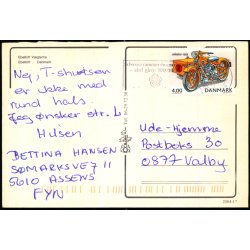 Ebeltoft Vægterne
Ebeltoft Danmark
Nej, T-shirtsen
er ikke med
rund hals.
Jeg ønsker str. L
Hilsen
BETTINA HANSEN
SØMARKSVEJ 11
5610 ASSENS
FYN
4.00 DANMARK
Ude-Hjemme
Postboks 30
0877 Valby